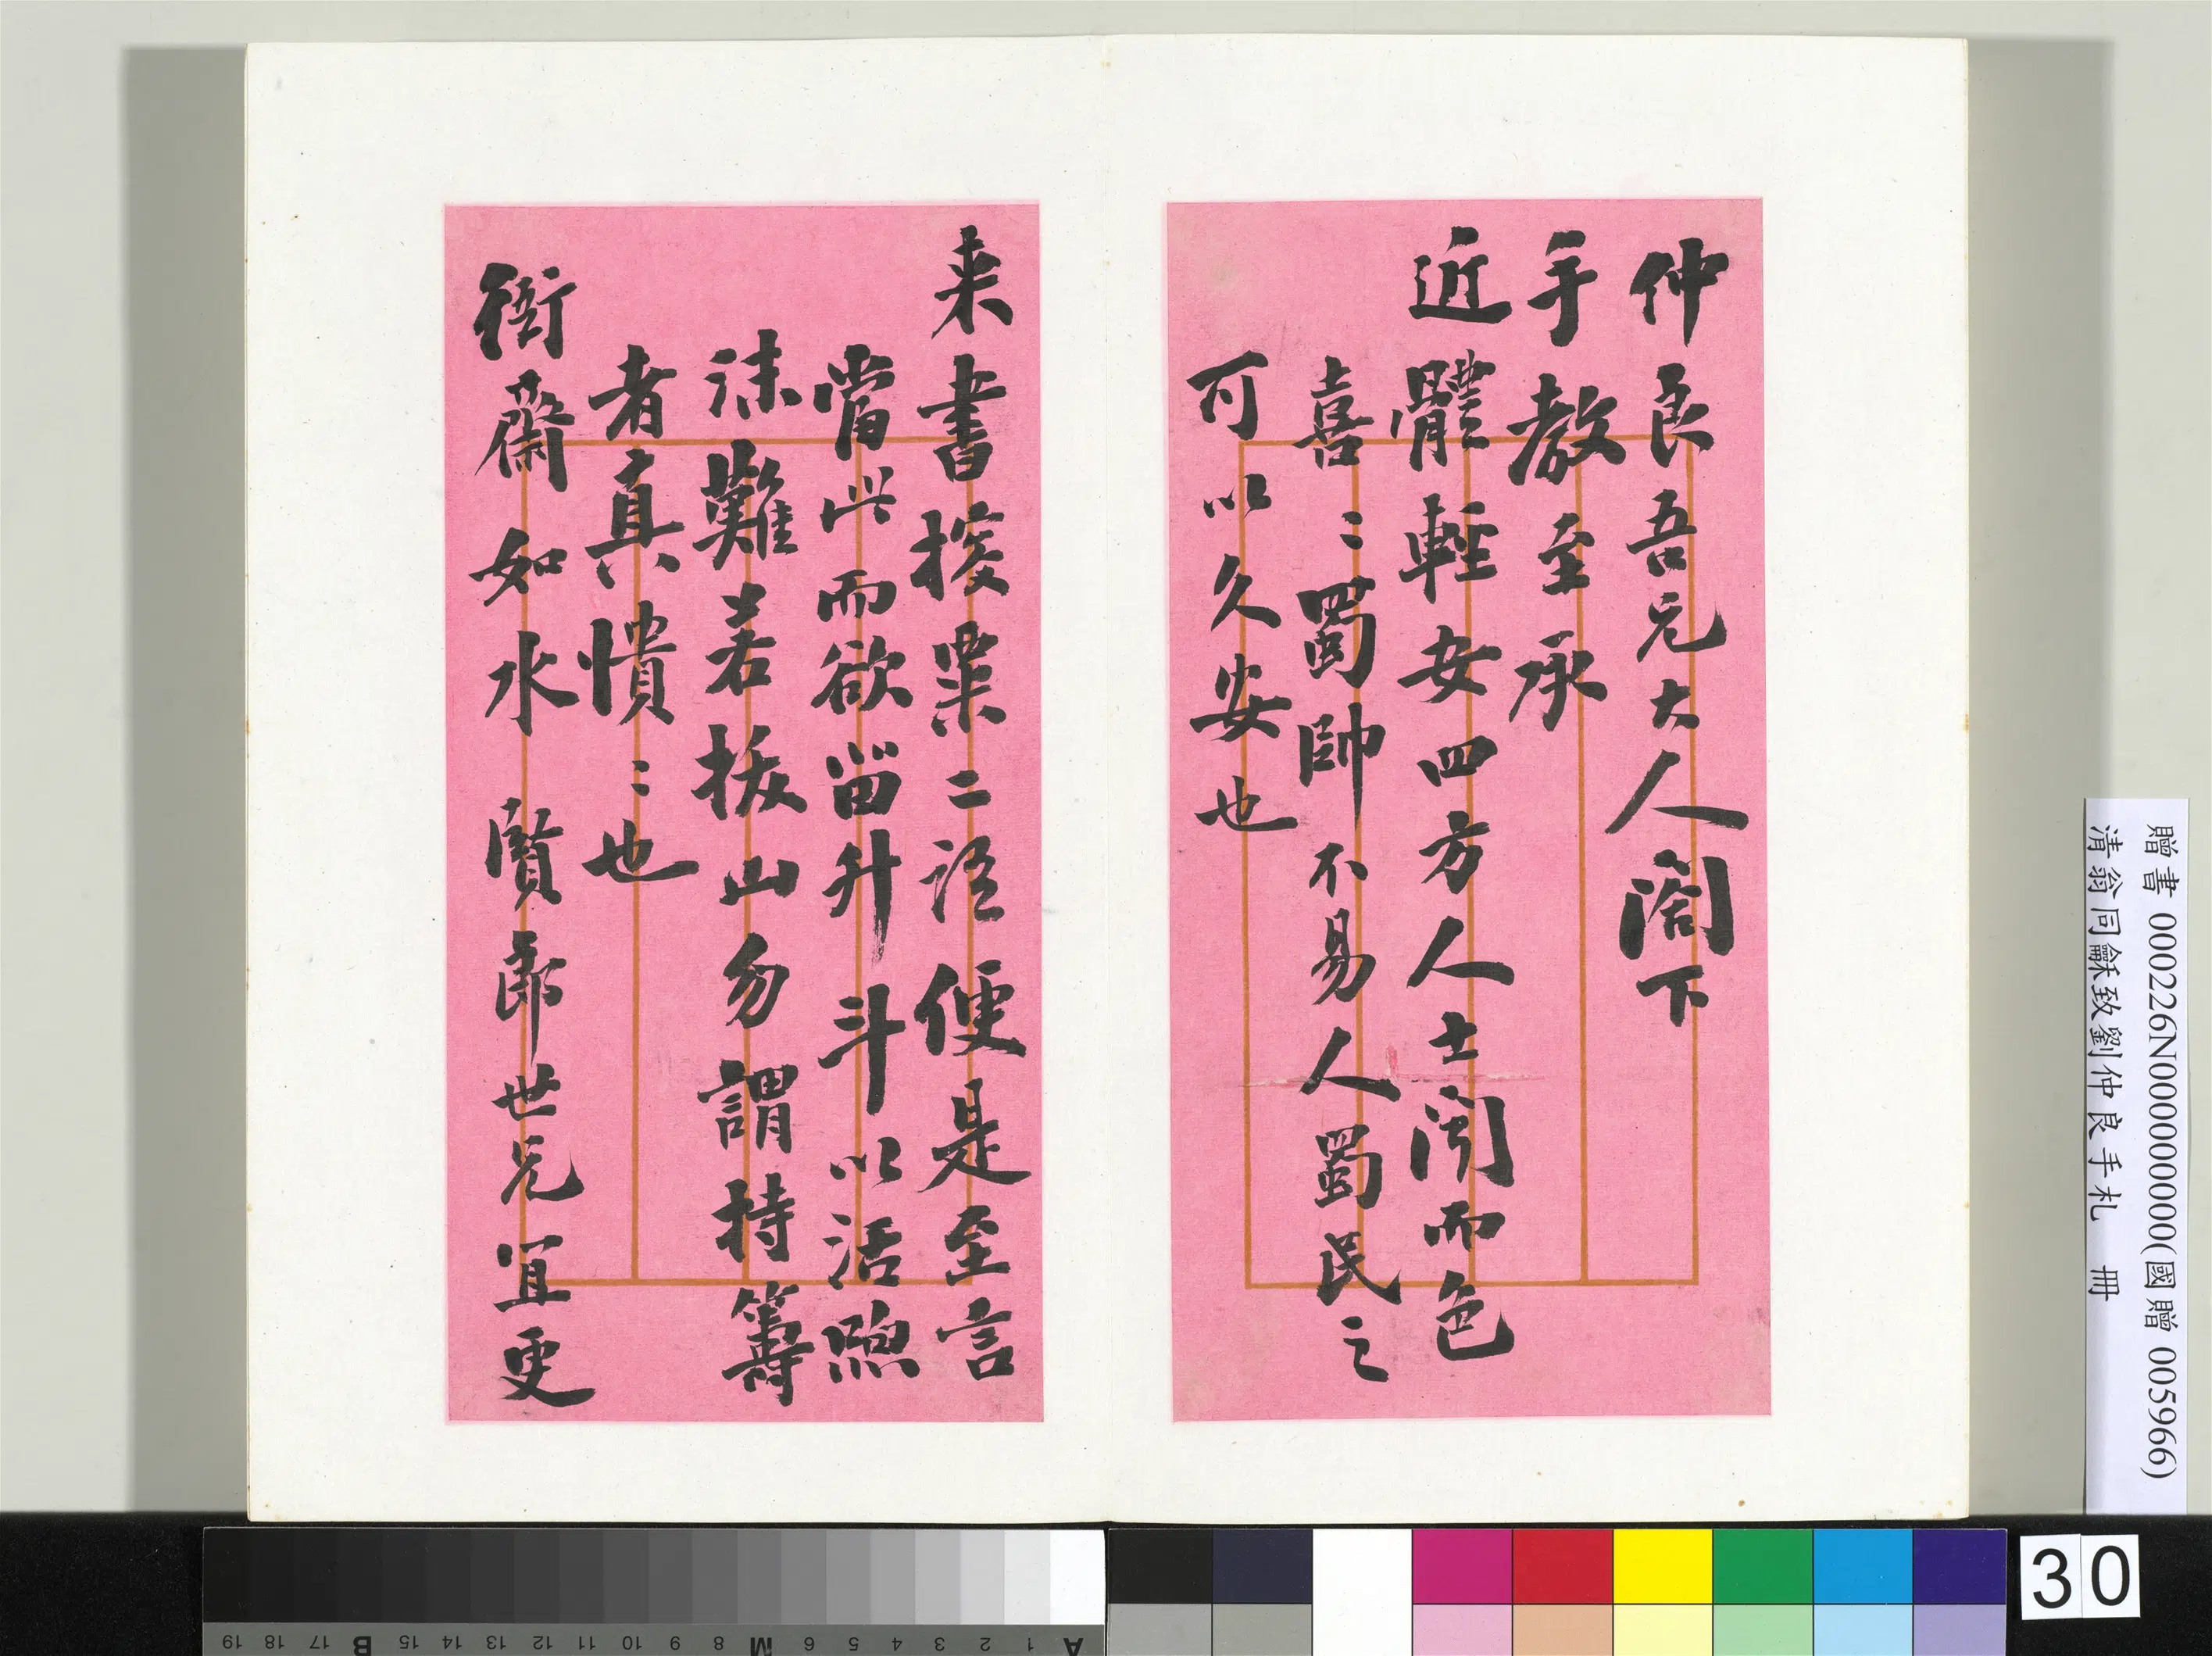 仲良吾兄大人閣下
手教至承
近體輕安四方人士聞而色
喜〻蜀帥不易人蜀民之
可以久安也
来書揆業二語便是至言
當此而欲畱升斗以活
誅難若拔山勿謂持籌
者真憒〻也
衙齋如水 賢郎世兄宜更
贈書 000226N000000000(國贈 005966)
清翁同龢致劉仲良手札 冊
30
A 1 2 3 4 5 6 M 8 9 10 11 12 13 14 15 B 17 18 19